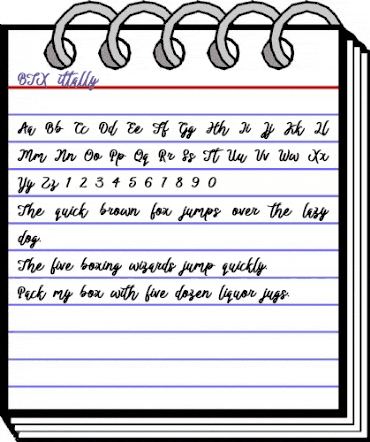 BTX ittally
Aa Bb Cc Dd Ee Ff Gg Hh Ii Jj Kk Ll
Mm Nn Oo Pp Qq Rr Ss Tt Uu Vv Ww Xx
Yy Zz 1 2 3 4 5 6 7 8 9 0
The quick brown fox jumps over the lazy
dog.
The five boxing wizards jump quickly.
Pack my box with five dozen liquor jugs.